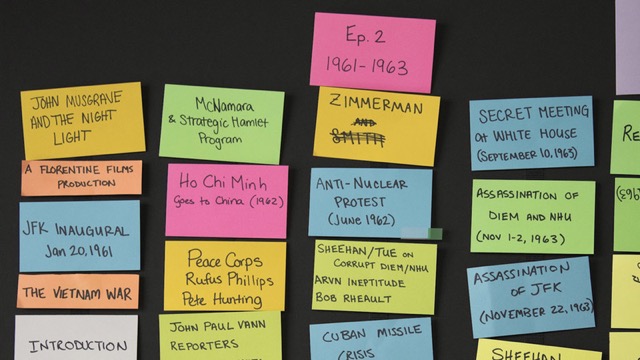 Ep. 2
1961-1963
JOHN MUSGRAVE
AND THE NIGHT
LIGHT
A FLORENTINE FILMS
PRODUCTION
JFK INAUGURAL
Jan 20, 1961
THE VIETNAM WAR
INTRODUCTION
McNamara
& Strategic Hamlet
Program
Ho Chi Minh
Goes to China (1962)
Peace Corps
Rufus Phillips
Pete Hunting
JOHN PAUL VANN
REPORTERS
ZIMMERMAN
AND
SMITH
ANTI-NUCLEAR
PROTEST
(June 1962)
SHEEHAN/TUE on
CORRUPT DIEM/NHU
ARVN INEPTITUDE
BOB RHEAULT
CUBAN MISSILE
CRISIS
SECRET MEETING
at WHITE HOUSE
(SEPTEMBER 10, 1963)
ASSASSINATION OF
DIEM AND NHU
(NOV 1-2, 1963)
ASSASSINATION
OF JFK
(NOVEMBER 22, 1963)
SHEEHAN